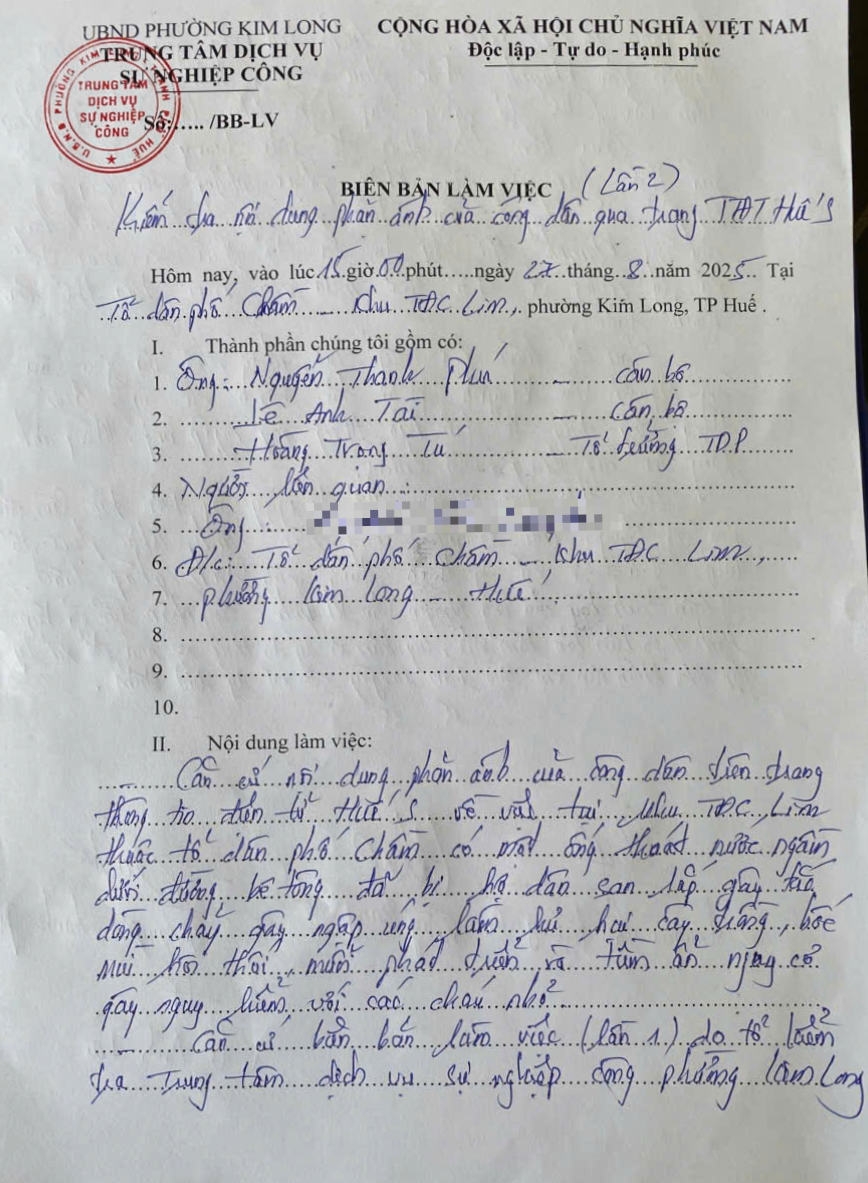 UBND PHƯỜNG KIM LONG
TRUNG TÂM DỊCH VỤ
SỰ NGHIỆP CÔNG
CỘNG HÒA XÃ HỘI CHỦ NGHĨA VIỆT NAM
Độc lập - Tự do - Hạnh phúc
TRUNG TÂM
DỊCH VỤ
SỰ NGHIỆP
CÔNG
Số:..... /BB-LV
BIÊN BẢN LÀM VIỆC (Lần 2)
Kiểm tra nội dung phản ánh của công dân qua trang TTĐT Huế S
Hôm nay, vào lúc 15 giờ 00 phút.....ngày 27 tháng 8 năm 2025 Tại
Tổ dân phố Chầm - Khu TĐC Lim, phường Kim Long, TP Huế .
I. Thành phần chúng tôi gồm có:
1. Ông: Nguyễn Thanh Phú - cán bộ
2. Lê Anh Tài - cán bộ
3. Hoàng Trọng Tú - Tổ trưởng TDP
4. Người liên quan :
5. Ông :
6. Đ/c: Tổ dân phố Chầm - Khu TĐC Lim,
7. phường Kim Long - Huế
8.
9.
10.
II. Nội dung làm việc:
Căn cứ nội dung phản ánh của công dân trên trang
thông tin điện tử Huế S về việc tại khu TĐC Lim
thuộc tổ dân phố Chầm có một ống thoát nước ngầm
dưới đường bê tông đã bị hộ dân san lấp gây tắc
dòng chảy gây ngập úng làm hư cây trồng, bốc
mùi hôi thối, muỗi phát triển và tiềm ẩn nguy cơ
gây nguy hiểm với các cháu nhỏ
Căn cứ biên bản làm việc (lần 1) do tổ kiểm
tra Trung tâm dịch vụ sự nghiệp công phường Kim Long